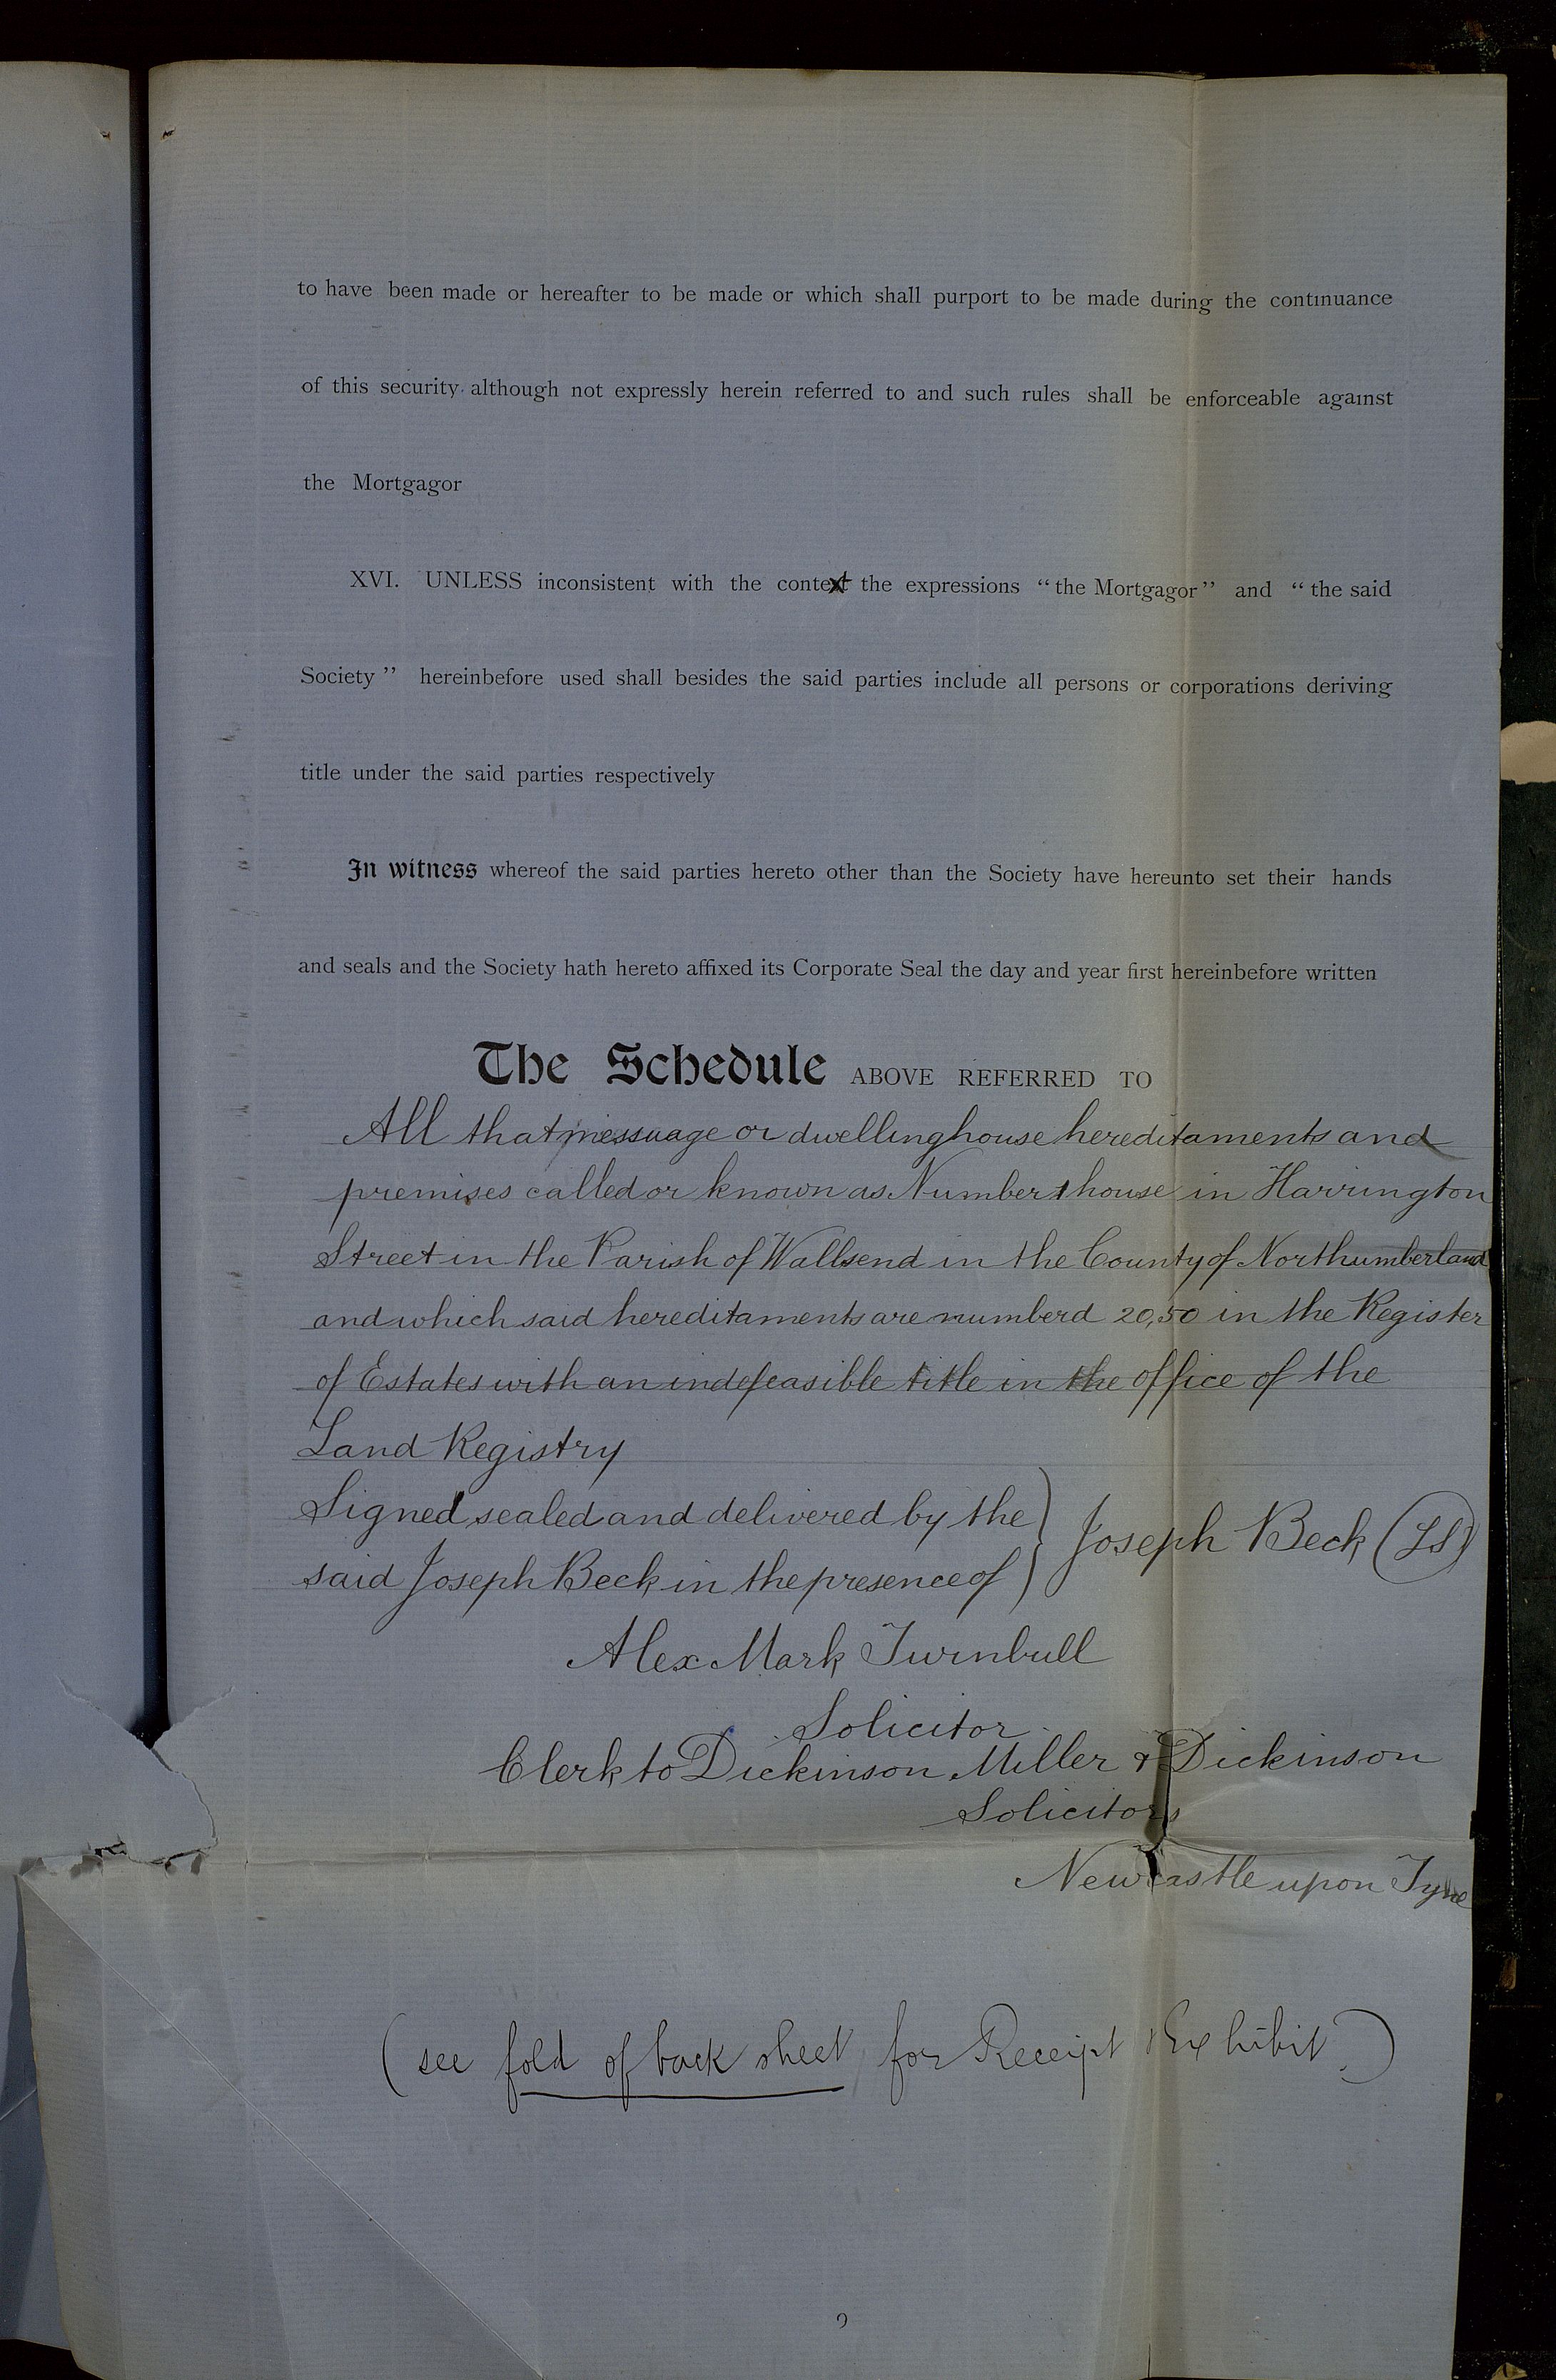 to have been made or hereafter to be made or which shall purport to be made during the continuance
of this security although not expressly herein referred to and such rules shall be enforceable against
the Mortgagor
XVI. UNLESS inconsistent with the context the expressions “the Mortgagor” and “the said
Society” hereinbefore used shall besides the said parties include all persons or corporations deriving
title under the said parties respectively
In witness whereof the said parties hereto other than the Society have hereunto set their hands
and seals and the Society hath hereto affixed its Corporate Seal the day and year first hereinbefore written
The Schedule ABOVE REFERRED TO
All that messuage or dwellinghouse hereditaments and
premises called or known as Number 1 house in Harrington
Street in the Parish of Wallsend in the County of Northumberland
and which said hereditaments are numberd 20,50 in the Register
of Estates with an indefeasible title in the office of the
Land Registry
Signed sealed and delivered by the
said Joseph Beck in the presence of } Joseph Beck (LS)
Alex Mark Turnbull
Solicitor
Clerk to Dickinson Miller & Dickinson
Solicitors
Newcastle upon Tyne
(see fold of back sheet for Receipt & Exhibit.)